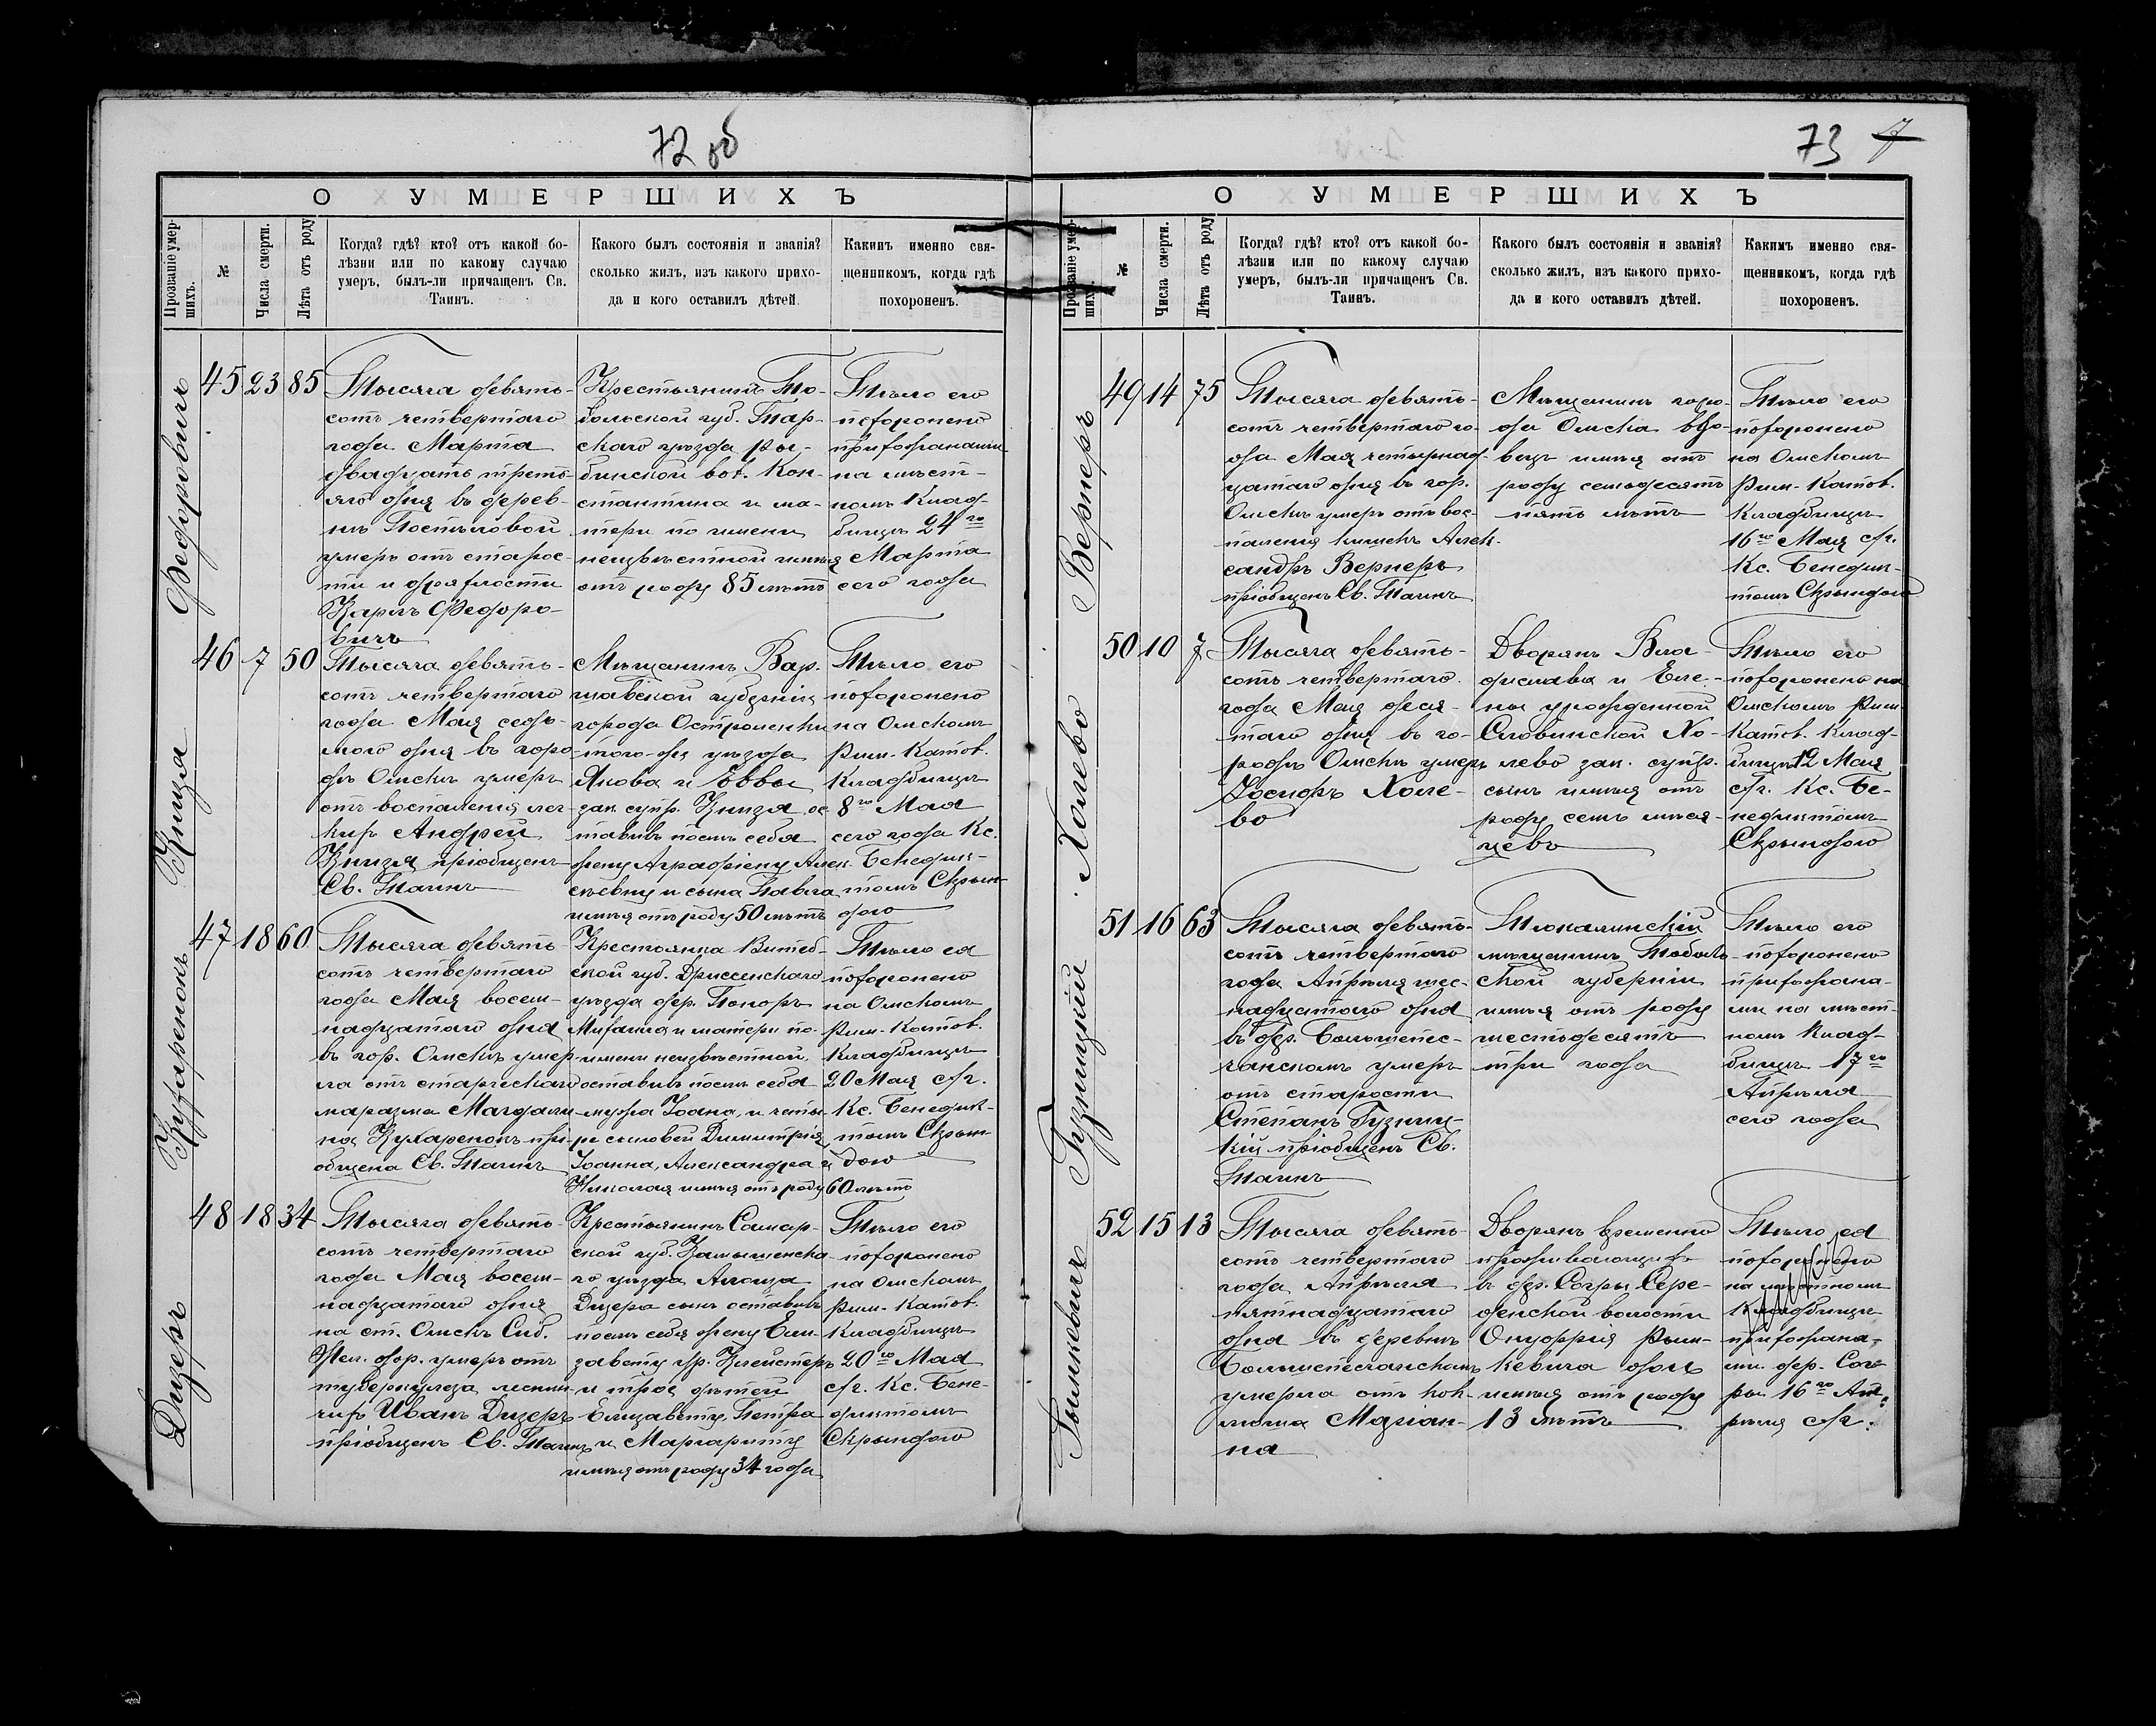 72 об
О УМЕРШИХЪ
Прозваніе умершихъ.
№
Числа смерти.
Лѣта отъ роду
Когда? гдѣ? кто? отъ какой бо-
лѣзни или по какому случаю
умеръ, былъ-ли причащенъ Св.
Таинъ.
Какого былъ состоянія и званія?
сколько жилъ, изъ какого прихо-
да и кого оставилъ дѣтей.
Какимъ именно свя-
щенникомъ, когда гдѣ
похороненъ.
Федоровичъ
45 23 85
Тысяча девять-
сотъ четвертаго
года Марта
двадцать треть-
яго дня въ дерев-
нѣ
умеръ отъ старос-
ти и дряхлости
Карлъ Федоро-
вичъ
Крестьянинъ То-
больской губ. Тар-
скаго уѣзда Ры-
бинской вол. Кон-
стантина и ма-
тери по имени
неизвѣстной имѣя
отъ роду 85 лѣтъ
Тѣло его
похоронено
прихожанами
на мѣст-
номъ клад-
бищѣ 24го
Марта
сего года
Книзя
46 7 50
Тысяча девять-
сотъ четвертаго
года Мая седь-
мого дня въ горо-
дѣ Омскѣ умеръ
отъ воспаленія лег-
кихъ Андрей
Книзя пріобщенъ
Св. Таинъ
Мѣщанинъ Вар-
шавской губерніи
города Остроленки
того-же уѣзда
Якова и Еввы
зак. супр. Книзя, ос-
тавивъ послѣ себя
жену Аграфену Алек-
сѣевну и сына Павла
имѣя отъ роду 50 лѣтъ
Тѣло его
похоронено
на Омскомъ
Рим.-Катол.
кладбищѣ
8го Мая
сего года Кс.
Бенедик-
томъ Скрын-
дого
Кухаренокъ
47 18 60
Тысяча девять-
сотъ четвертаго
года Мая восем-
надцатаго дня
въ гор. Омскѣ умер-
ла отъ старческаго
маразма Магдали-
на Кухаренокъ прі-
общена Св. Таинъ
Крестьянка Витеб-
ской губ. Дриссенскаго
уѣзда дер.
Михаила и матери по-
имени неизвѣстной,
оставивъ послѣ себя
мужа Іоана, и четы-
ре сыновей Димитрія,
Іоанна, Александра и
Николая имѣя отъ роду 60 лѣтъ
Тѣло ея
похоронено
на Омскомъ
Рим.-Катол.
кладбищѣ
20 Мая с/г.
Кс. Бенедик-
томъ Скрын-
дого
Дизеръ
48 18 34
Тысяча девять-
сотъ четвертаго
года Мая восем-
надцатаго дня
на ст. Омскъ Сиб.
Жел. дор. умеръ отъ
туберкулеза легки-
чихъ Иванъ Дизеръ
пріобщенъ Св. Таинъ
Крестьянинъ Самар-
ской губ. Камышенска-
го уѣзда,
Дизера сынъ оставивъ
послѣ себя жену Ели-
завету ур. Клейстеръ
и трое дѣтей
Елизавету, Петра
и Маргариту
имѣя отъ роду 34 года
Тѣло его
похоронено
на Омскомъ
Рим.-Катол.
кладбищѣ
20го Мая
с/г. Кс. Бене-
диктомъ
Скрындого
73
О УМЕРШИХЪ
Прозваніе умершихъ.
№
Числа смерти.
Лѣта отъ роду
Когда? гдѣ? кто? отъ какой бо-
лѣзни или по какому случаю
умеръ, былъ-ли причащенъ Св.
Таинъ.
Какого былъ состоянія и званія?
сколько жилъ, изъ какого прихо-
да и кого оставилъ дѣтей.
Какимъ именно свя-
щенникомъ, когда гдѣ
похороненъ.
Вернеръ
49 14 75
Тысяча девять-
сотъ четвертаго го-
да Мая четырнад-
цатаго дня въ гор.
Омскѣ умеръ отъ вос-
паленія кишекъ Алек-
сандръ Вернеръ
пріобщенъ Св. Таинъ
Мѣщанинъ горо-
да Омска вдо-
вецъ имѣя отъ
роду семьдесятъ
пять лѣтъ
Тѣло его
похоронено
на Омскомъ
Рим.-Катол.
кладбищѣ
16го Мая с/г.
Кс. Бенедик-
томъ Скрындого
Холево
50 10 7
Тысяча девять-
сотъ четвертаго
года Мая деся-
таго дня въ го-
родѣ Омскѣ умеръ
Іосифъ Холе-
во
Дворянъ Вла-
дислава и Еле-
ны урожденной
Словинской Хо-
лево зак. супр.
сынъ имѣя отъ
роду семь мѣся-
цевъ
Тѣло его
похоронено на
Омскомъ Рим.
Катол. клад-
бищѣ 12 Мая
с/г. Кс. Бе-
недиктомъ
Скрындого
Гузницкій
51 16 63
Тысяча девять-
сотъ четвертаго
года Апрѣля шес-
надцатаго дня
въ дер. Большепес-
чанскомъ умеръ
отъ старости
Степанъ Гузниц-
кій пріобщенъ Св.
Таинъ
Тюкалинскій
мѣщанинъ Тоболь-
ской губерніи
имѣя отъ роду
шестьдесятъ
три года
Тѣло его
похоронено
прихожана-
ми на мѣст-
номъ клад-
бищѣ 17го
Апрѣля
сего года
52 15 13
Тысяча девять-
сотъ четвертаго
года Апрѣля
пятнадцатаго
дня въ деревнѣ
Большепесчанскомъ
умерла отъ кок-
люша Маріан-
на
Дворянъ временно
проживающихъ
въ дер. Согры Сере-
женской волости
Онуфрія Рым-
кевича дочь
имѣя отъ роду
13 лѣтъ
Тѣло ея
похоронено
на мѣстномъ
кладбищѣ
прихожана-
ми дер. Сог-
ры 16го Ап-
рѣля с/г.